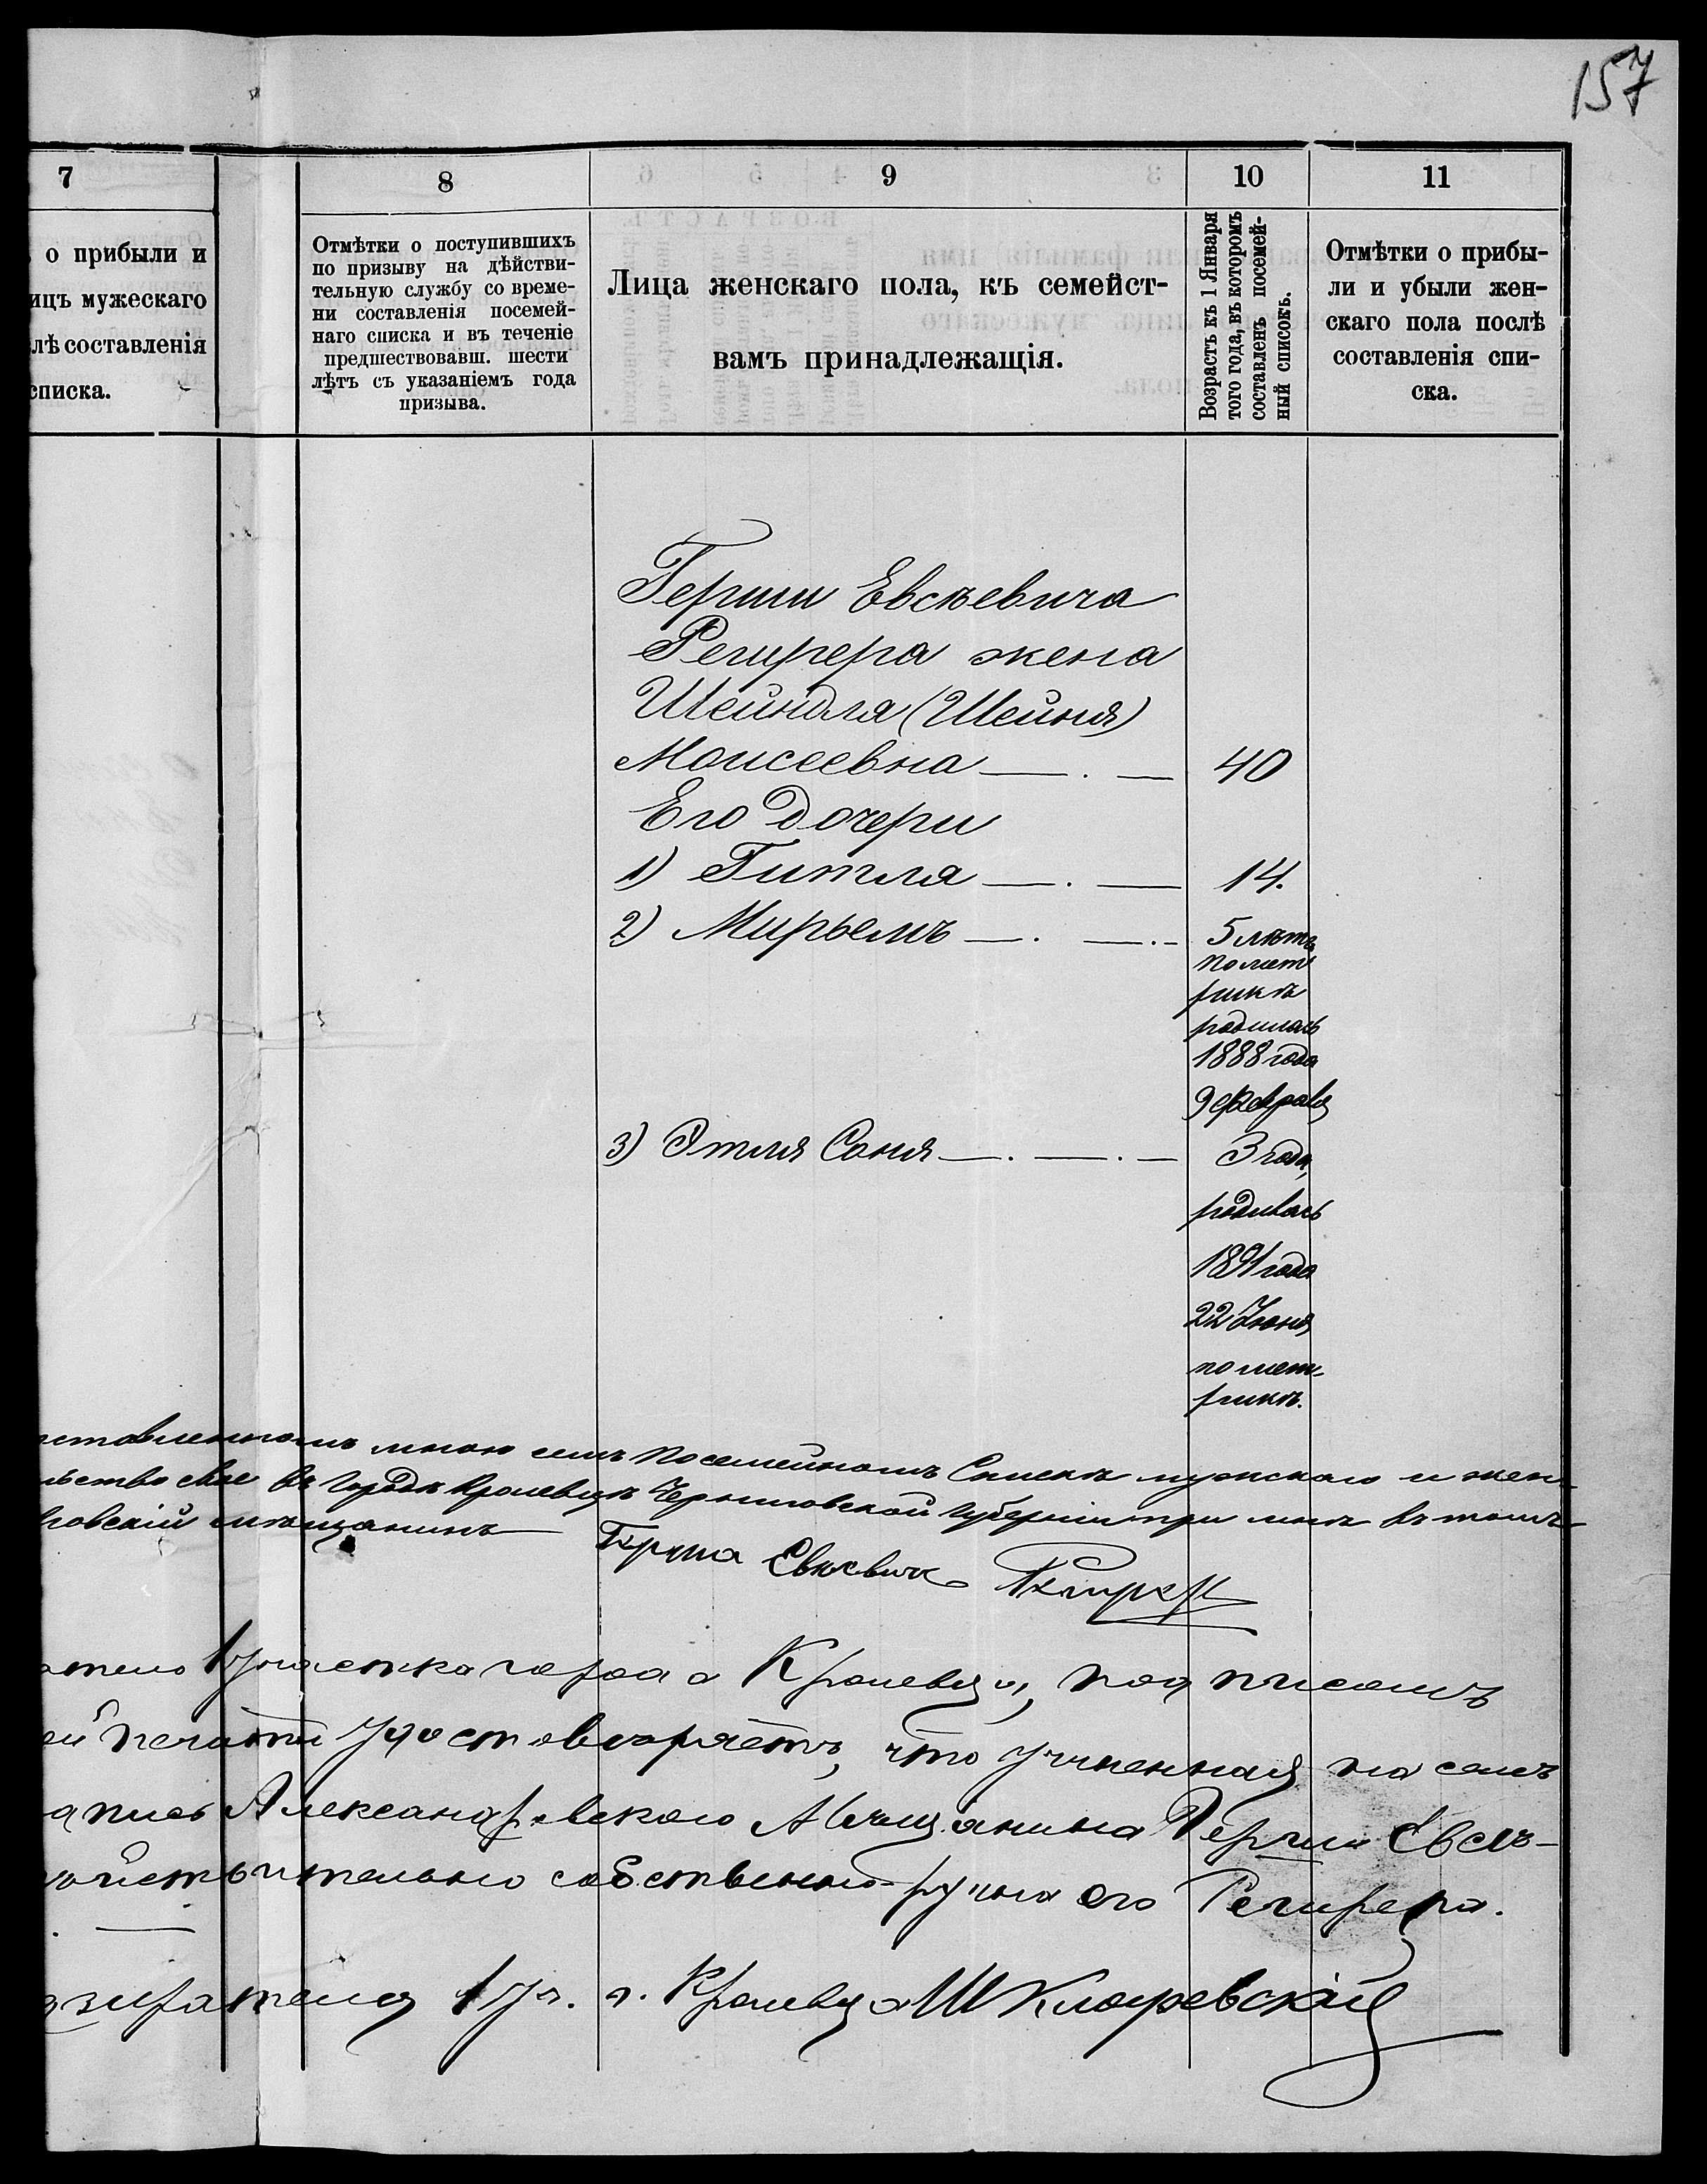 157
7
о прибыли и
ицъ мужескаго
лѣ составленія
списка.
8
Отмѣтки о поступившихъ
по призыву на дѣйстви-
тельную службу со време-
ни составленія посемей-
наго списка и въ теченіе
предшествовавш. шести
лѣтъ съ указаніемъ года
призыва.
9
Лица женскаго пола, къ семейст-
вамъ принадлежащія.
10
Возрастъ къ 1 Января
того года, въ которомъ
составленъ посемей-
ный списокъ.
11
Отмѣтки о прибы-
ли и убыли жен-
скаго пола послѣ
составленія спи-
ска.
Герши Евсѣевича
Регирера жена
Шейндля (Шейня)
Моисеевна 40
Его Дочери
1) Гитля 14.
2) Мирьемъ 5 лѣтъ
по мет
рикѣ
родилась
1888 года
9 Февраля
3) Этля Соня 3 года,
родилась
1891 года
22 Іюня
по мет-
рикѣ.
ставленномъ мною семъ посемейномъ Спискѣ мужскаго и жен-
льство мое въ Городѣ Кролевцѣ Черниговской губерніи при мнѣ въ томъ
ровскій мѣщанинъ
Герша Евсѣевичъ Регирер
ателю 1 участка города Кролевца, подписомъ
ей печати удостовѣряетъ, что учиненная на семъ
дпись Александровскаго Мѣщанина Герши Евсѣ-
йствительно собственноручна его Регирера.
дзирателя 1 уч. г. Кролевца Шкляревскій